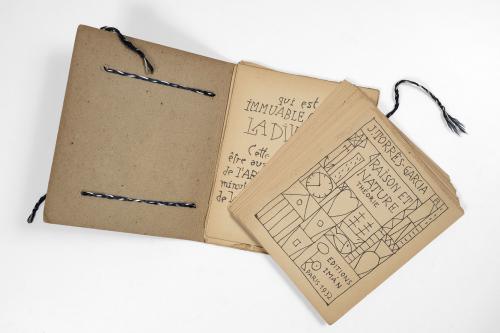 qui est
IMMUABLE
LA DIV
Cette
être au
de l'AR
minu
de l
J. TORRÈS-GARCIA
RAISON ET
NATURE
THÉORIE
EDITIONS
IMÁN
PARIS 1932